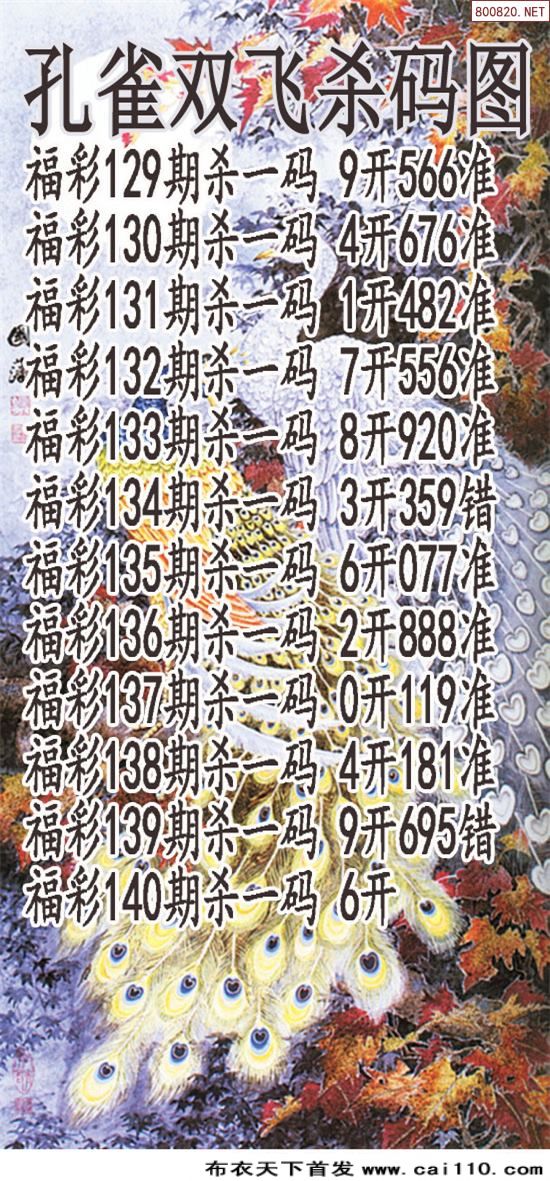 800820.NET
孔雀双飞杀码图
福彩129期杀一码 9开566准
福彩130期杀一码 4开676准
福彩131期杀一码 1开482准
福彩132期杀一码 7开556准
福彩133期杀一码 8开920准
福彩134期杀一码 3开359错
福彩135期杀一码 6开077准
福彩136期杀一码 2开888准
福彩137期杀一码 0开119准
福彩138期杀一码 4开181准
福彩139期杀一码 9开695错
福彩140期杀一码 6开
布衣天下首发 www.cai110.com